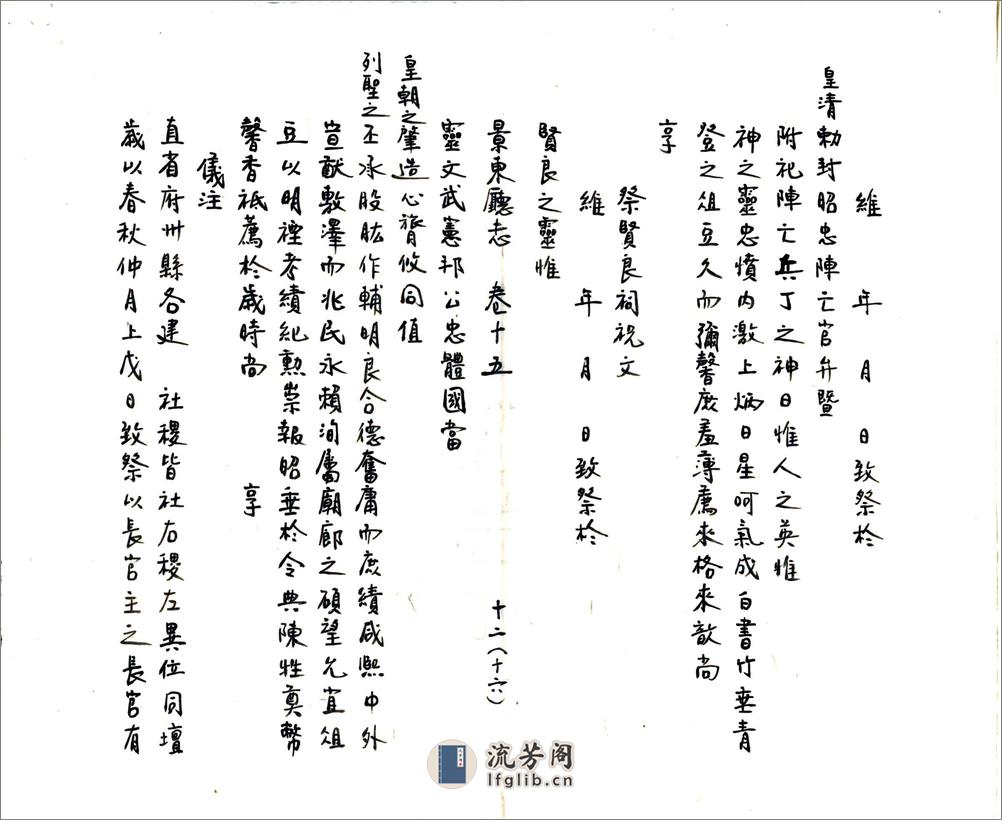 維　年　月　日致祭於
皇清勅封昭忠陣亡官弁暨
附祀陣亡兵丁之神曰惟人之英惟
神之靈忠憤內激上炳日星呵氣成白書竹垂青
登之俎豆久而彌馨庶羞薄薦來格來歆尚
享
祭賢良祠祝文
維　年　月　日致祭於
賢良之靈惟
景東廳志　卷十五　十二（十六）
靈文武憲邦公忠體國當
皇朝之肇造心膂攸同值
列聖之丕承股肱作輔明良合德奮庸而庶績咸熙中外
宣猷敷澤而兆民永賴洵屬廟廊之碩望允宜俎
豆以明禋考績紀勲崇報昭垂於令典陳牲奠幣
馨香祗薦於歲時尚　享
儀注
直省府州縣各建　社稷皆社右稷左異位同壇
歲以春秋仲月上戊日致祭以長官主之長官有
流芳阁
lfglib.cn